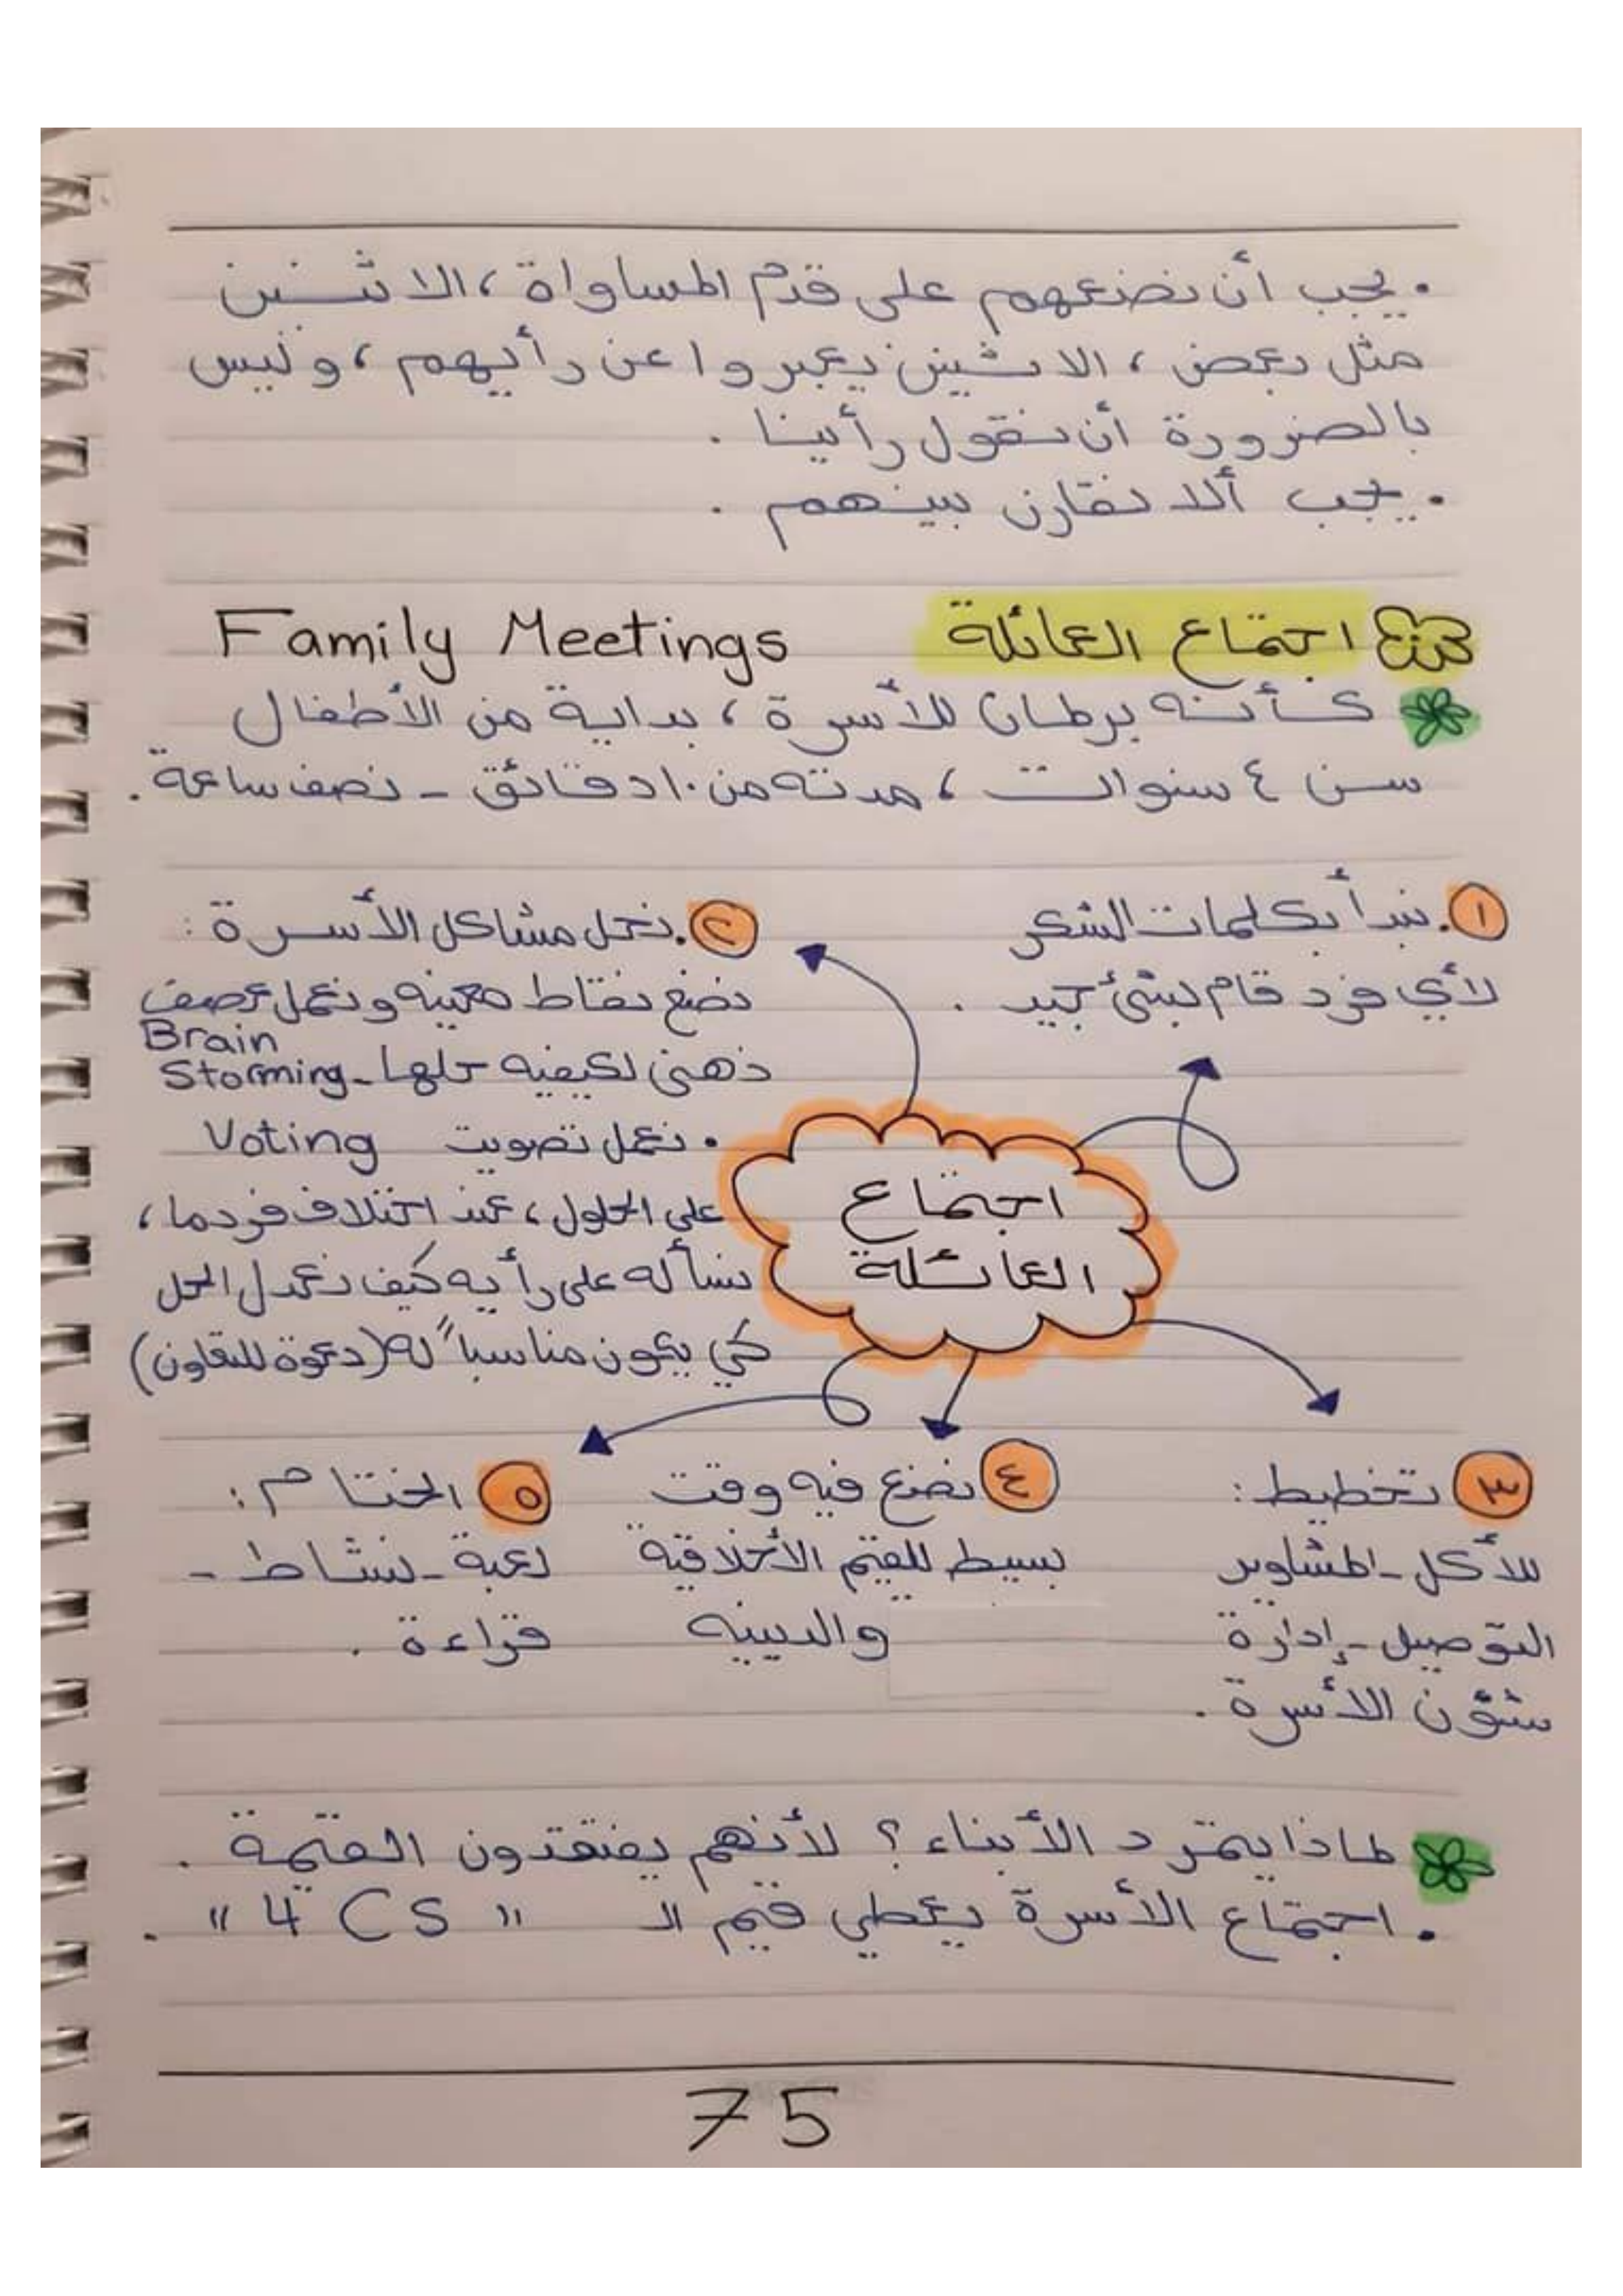 . يجب أن نضعهم على قدم المساواة ، الاثنين
مثل بعض ، الاثنين يعبروا عن رأيهم ، وليس
بالضرورة أن نقول رأينا .
. يجب ألا نقارن بينهم .
اجتماع العائلة Family Meetings
كأنه برلمان للأسرة ، بداية من الأطفال
سن ٤ سنوات ، مدته من ١٠ دقائق - نصف ساعة .
١. نبدأ بكلمات الشكر
لأي فرد قام بشئ جيد .
٢. نحل مشاكل الأسرة :
نضع نقاط معينه ونعمل عصف
ذهني لكيفيه حلها - Brain
Storming
. نعمل تصويت Voting
على الحلول ، عند اختلاف فرد ما ،
نسأله على رأيه كيف نعدل الحل
كي يكون مناسباً له (دعوة للتعاون)
اجتماع
العائلة
٣ تخطيط :
للأكل - المشاوير
التوصيل - إدارة
شؤن الأسرة .
٤ نضع فيه وقت
بسيط للقيم الأخلاقية
والدينيه
٥ الختام :
لعبة - نشاط -
قراءة .
لماذا يتمرد الأبناء ؟ لأنهم يفتقدون القيمة .
. اجتماع الأسرة يعطي قيم الـ " 4 CS " .
75